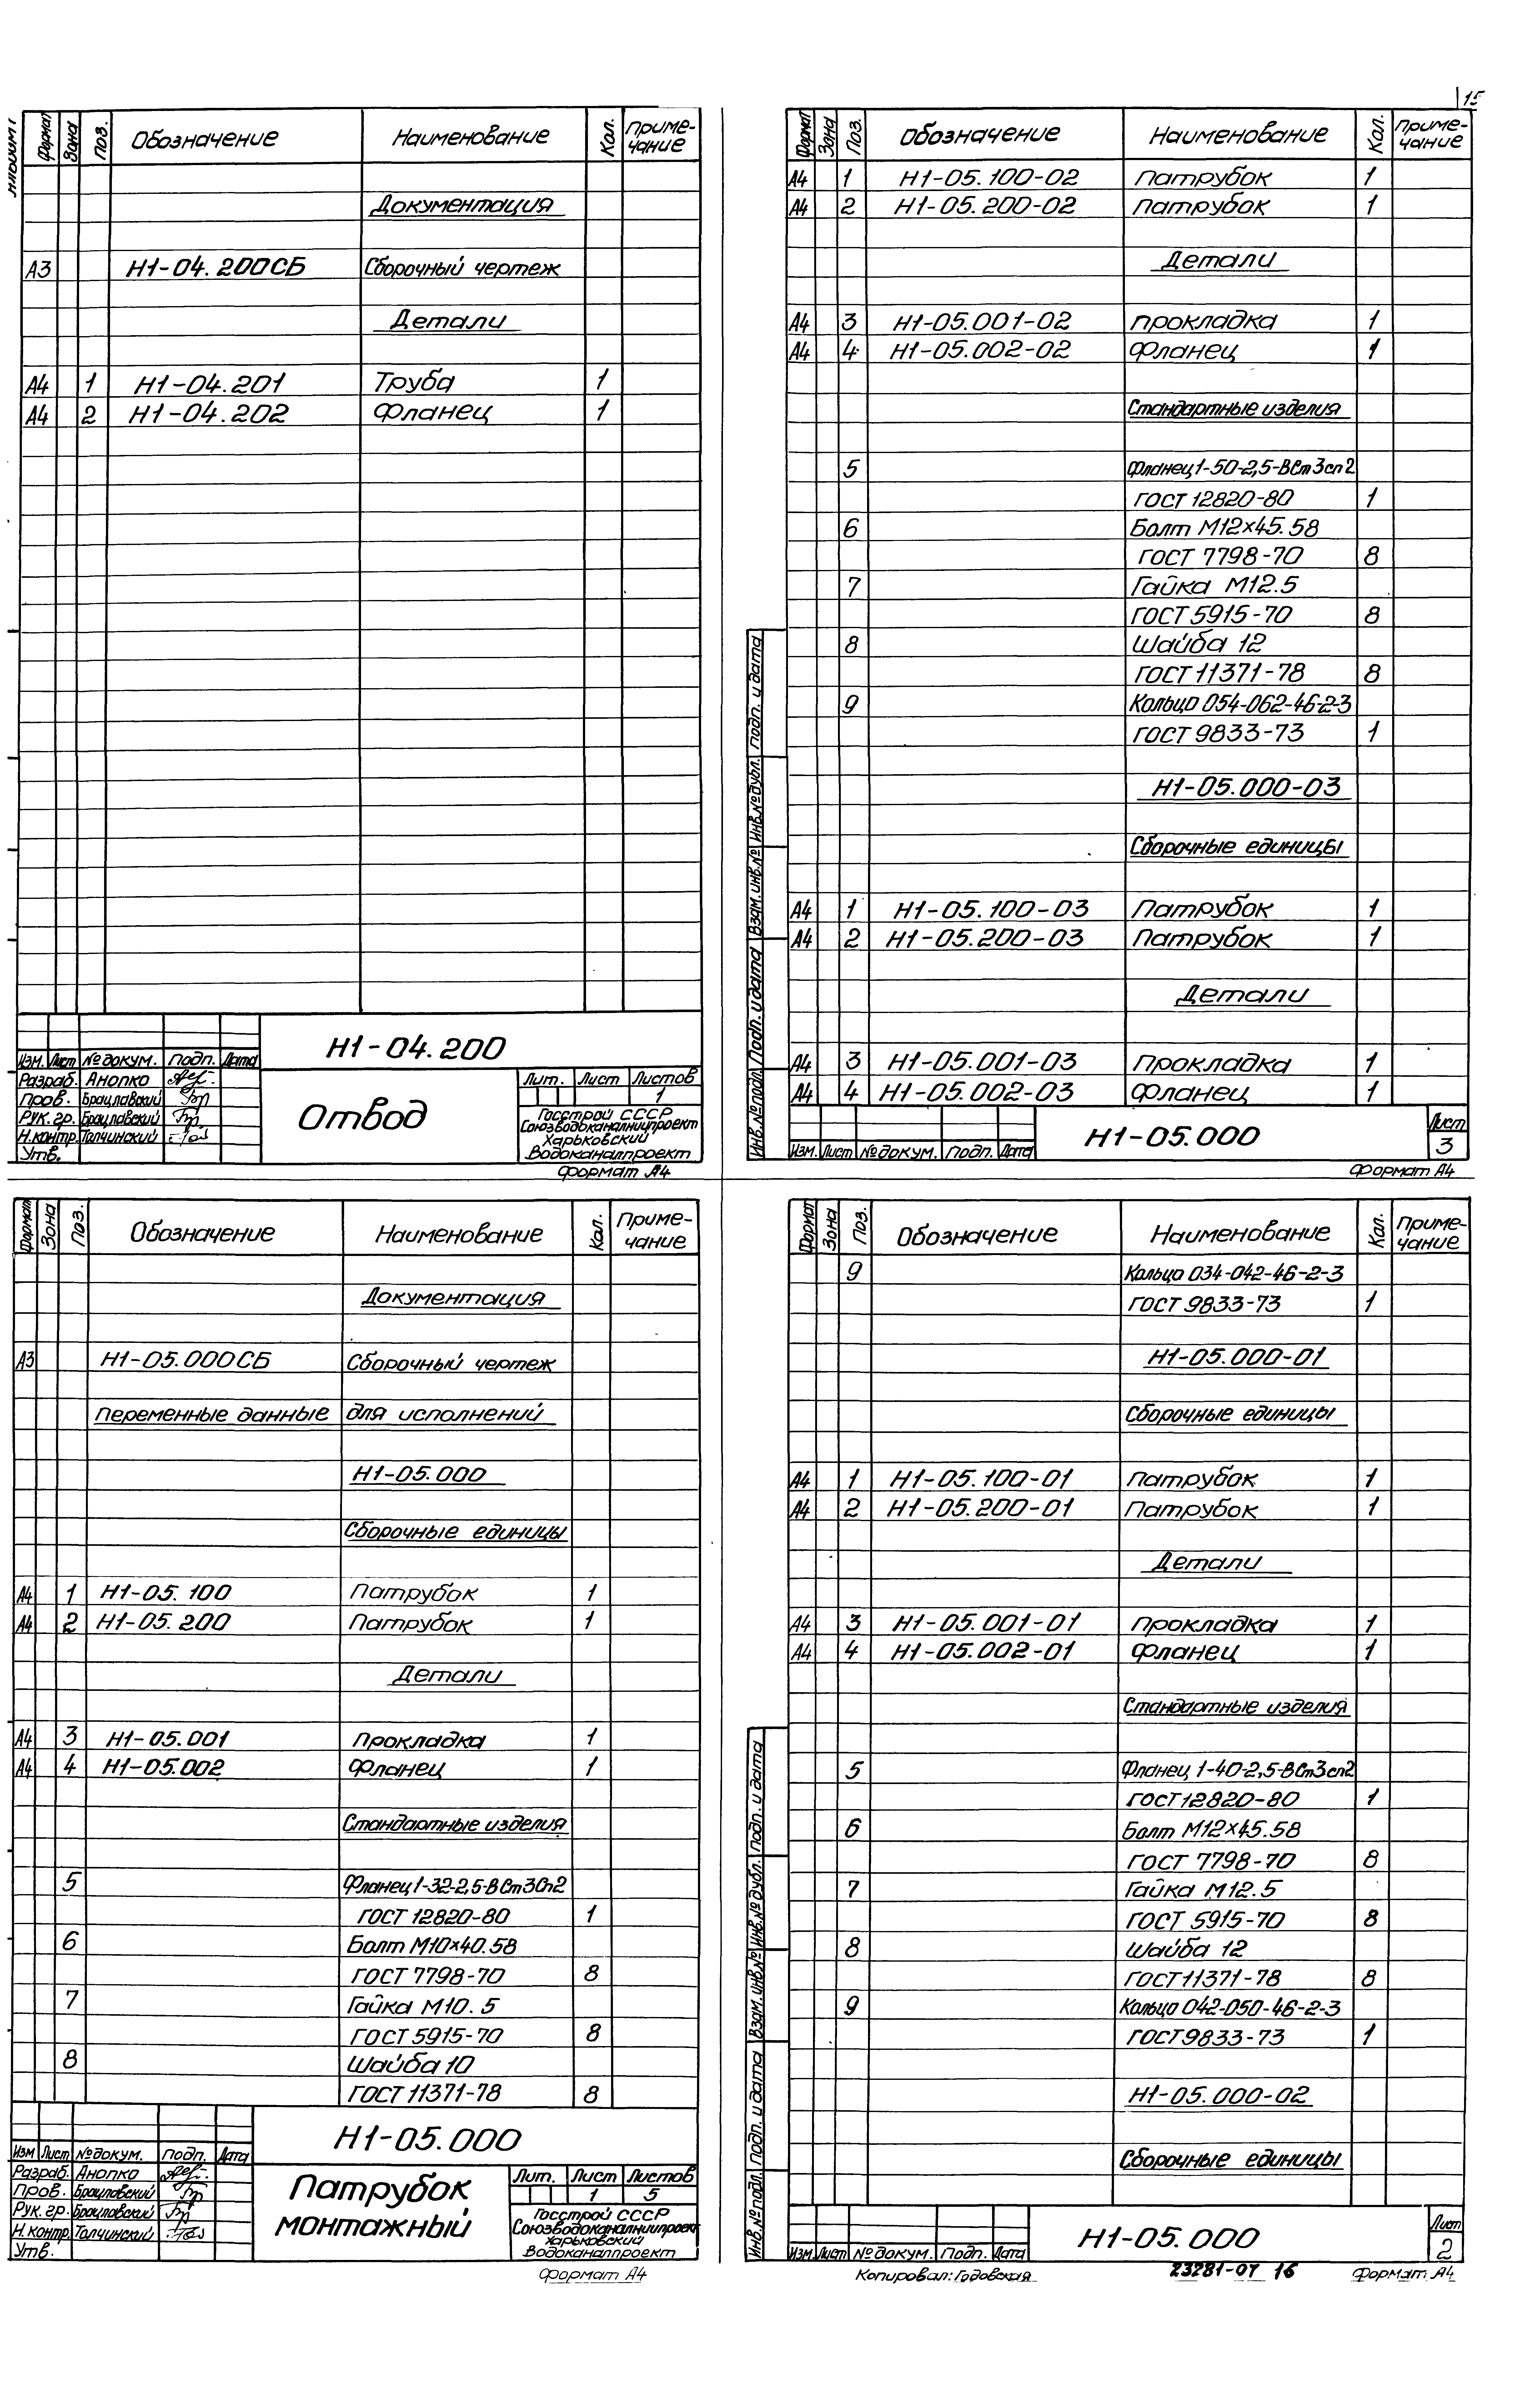 15
Формат Зона Поз. Обозначение Наименование Кол. Примечание
Документация
А3 Н1-04.200СБ Сборочный чертеж
Детали
А4 1 Н1-04.201 Труба 1
А4 2 Н1-04.202 Фланец 1
Н1-04.200
Изм. Лист № докум. Подп. Дата
Разраб. Анопко
Пров. Брацлавский
Рук. гр. Брацлавский
Н.контр. Толчинский
Утв.
Отвод
Лит. Лист Листов
1
Госстрой СССР
Союзводоканалниипроект
Харьковский
Водоканалпроект
Формат А4
Формат Зона Поз. Обозначение Наименование Кол. Примечание
А4 1 Н1-05.100-02 Патрубок 1
А4 2 Н1-05.200-02 Патрубок 1
Детали
А4 3 Н1-05.001-02 Прокладка 1
А4 4 Н1-05.002-02 Фланец 1
Стандартные изделия
5 Фланец 1-50-2,5-ВСт3сп2
ГОСТ 12820-80 1
6 Болт М12×45.58
ГОСТ 7798-70 8
7 Гайка М12.5
ГОСТ 5915-70 8
8 Шайба 12
ГОСТ 11371-78 8
9 Кольцо 054-062-46-2-3
ГОСТ 9833-73 1
Н1-05.000-03
Сборочные единицы
А4 1 Н1-05.100-03 Патрубок 1
А4 2 Н1-05.200-03 Патрубок 1
Детали
А4 3 Н1-05.001-03 Прокладка 1
А4 4 Н1-05.002-03 Фланец 1
Инв.№подл. Подп. и дата Взам.инв.№ Инв.№дубл. Подп. и дата
Изм. Лист № докум. Подп. Дата
Н1-05.000
Лист
3
Формат А4
Формат Зона Поз. Обозначение Наименование Кол. Примечание
Документация
А3 Н1-05.000СБ Сборочный чертеж
Переменные данные для исполнений
Н1-05.000
Сборочные единицы
А4 1 Н1-05.100 Патрубок 1
А4 2 Н1-05.200 Патрубок 1
Детали
А4 3 Н1-05.001 Прокладка 1
А4 4 Н1-05.002 Фланец 1
Стандартные изделия
5 Фланец 1-32-2,5-ВСт3Сп2
ГОСТ 12820-80 1
6 Болт М10×40.58
ГОСТ 7798-70 8
7 Гайка М10.5
ГОСТ 5915-70 8
8 Шайба 10
ГОСТ 11371-78 8
Н1-05.000
Изм Лист № докум. Подп. Дата
Разраб. Анопко
Пров. Брацлавский
Рук. гр. Брацловский
Н.контр. Толчинский
Утв.
Патрубок
монтажный
Лит. Лист Листов
1 5
Госстрой СССР
Союзводоканалниипроект
Харьковский
Водоканалпроект
Формат А4
Формат Зона Поз. Обозначение Наименование Кол. Примечание
9 Кольцо 034-042-46-2-3
ГОСТ 9833-73 1
Н1-05.000-01
Сборочные единицы
А4 1 Н1-05.100-01 Патрубок 1
А4 2 Н1-05.200-01 Патрубок 1
Детали
А4 3 Н1-05.001-01 Прокладка 1
А4 4 Н1-05.002-01 Фланец 1
Стандартные изделия
5 Фланец 1-40-2,5-ВСт3сп2
ГОСТ 12820-80 1
6 Болт М12×45.58
ГОСТ 7798-70 8
7 Гайка М12.5
ГОСТ 5915-70 8
8 Шайба 12
ГОСТ 11371-78 8
9 Кольцо 042-050-46-2-3
ГОСТ 9833-73 1
Н1-05.000-02
Сборочные единицы
Инв.№подл. Подп. и дата Взам.инв.№ Инв.№дубл. Подп. и дата
Изм. Лист № докум. Подп. Дата
Н1-05.000
Лист
2
Копировал: Годовская
23281-07 16
Формат А4